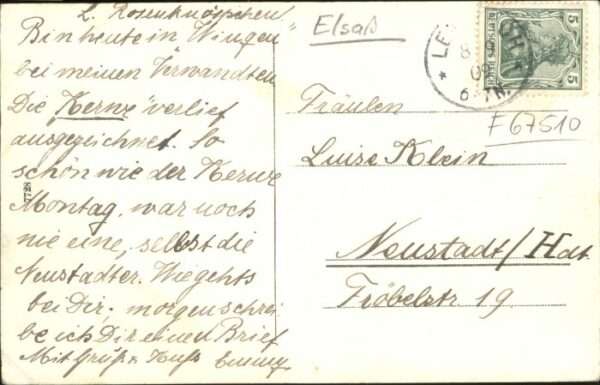 L. Rosenknöspchen
Bin heute in Wingen
bei meinen Verwandten
Die "Kerwe" verlief
ausgezeichnet. So
schön wie der Kerwe
Montag, war noch
nie eine, selbst die
Neustadter. Wie gehts
bei Dir; morgen schrei
be ich Dir einen Brief
Mit Gruß u. Kuss Emmy
7728
Elsaß
5 5
F 67510
Fräulen
Luise Klein
Neustadt/Hdt
Fröbelstr 19.